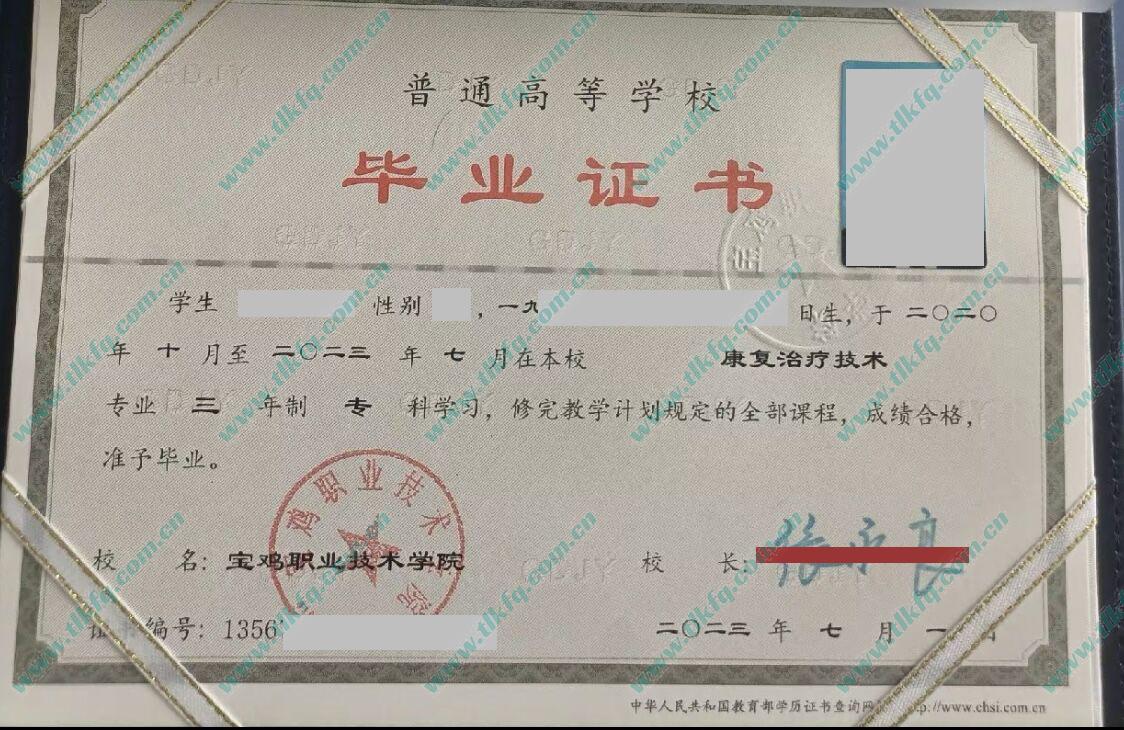 普通高等学校
毕业证书
学生 性别 ，一九 日生，于 二〇二〇
年 十 月至 二〇二三 年 七 月在本校 康复治疗技术
专业 三 年制 专 科学习，修完教学计划规定的全部课程，成绩合格，
准予毕业。
鸡职业技术 院
校 名：宝鸡职业技术学院 校 长：
证书编号：1356
二〇二三 年 七 月 一
中华人民共和国教育部学历证书查询网 http://www.chsi.com.cn
www.tlkfq.com.cn